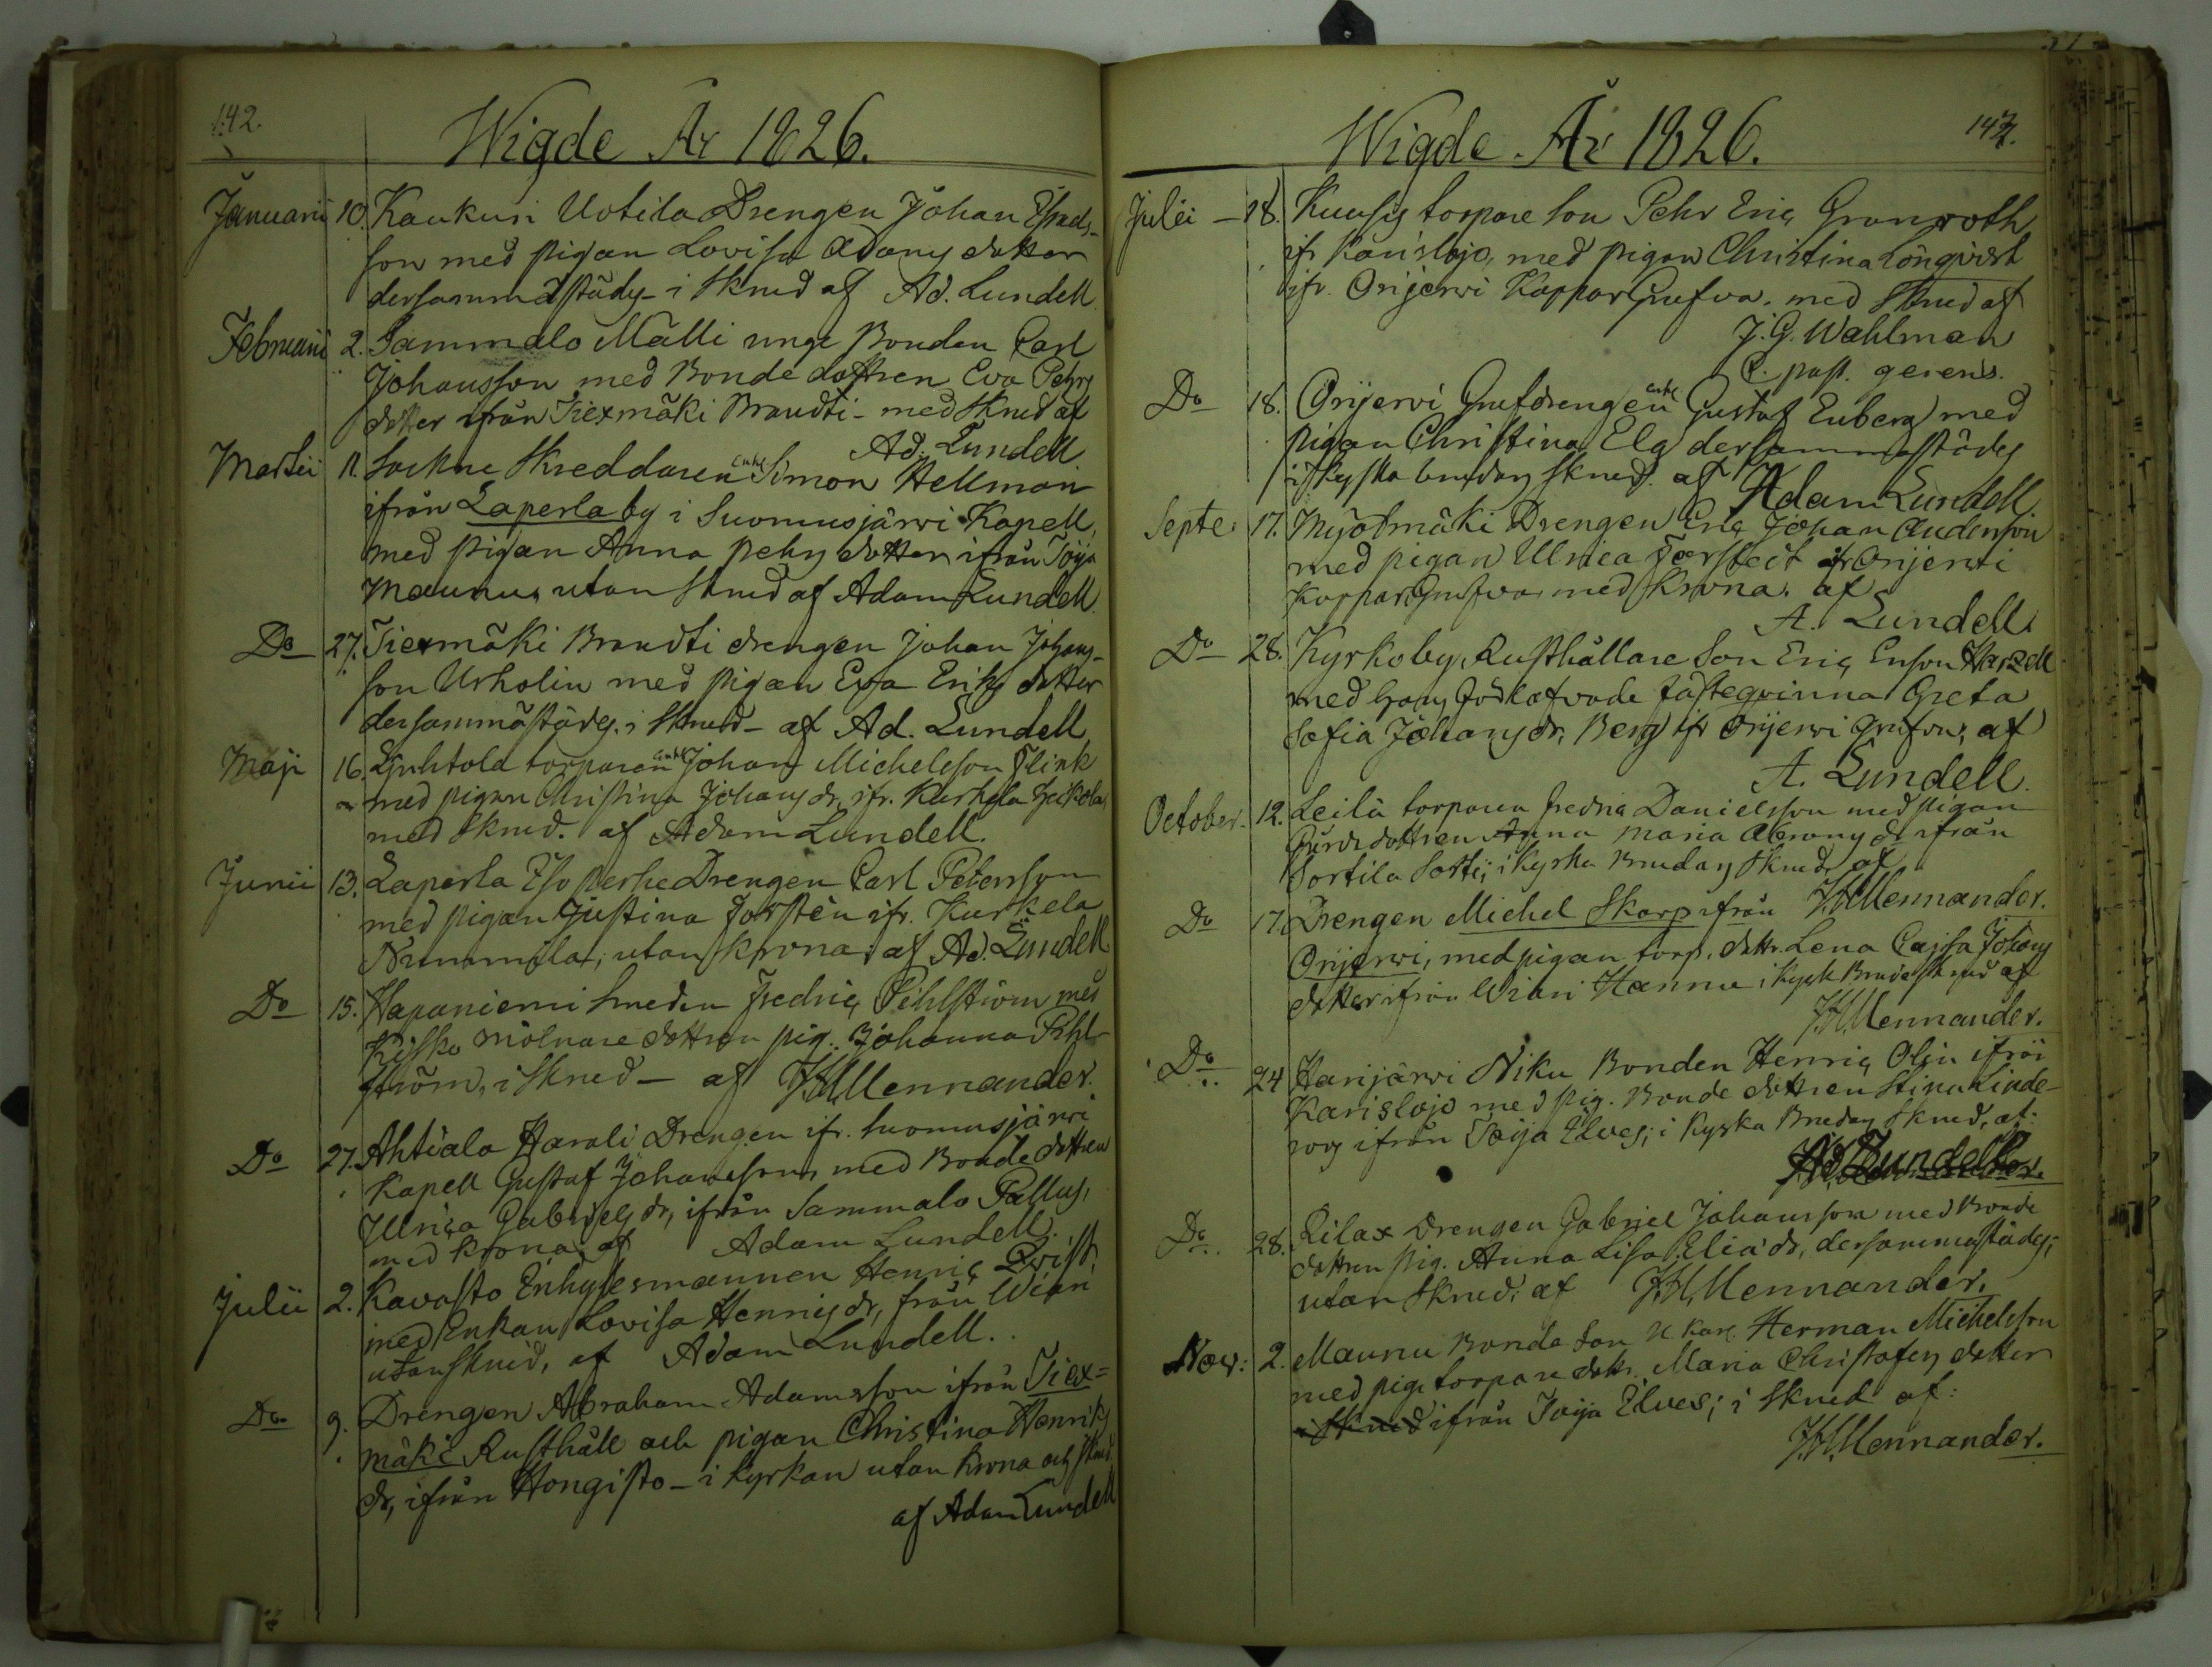 142.
Wigde År 1826.
Januarii 10. Kaukuri Uotila Drengen Johan Esrads-
son med pigan Lovisa Adams dotter
dersammastädes i skrud af Ad. Lundell
Februarii 2. Sammalo Matti unge Bonden Carl
Johansson med Bonde dottren Eva Pehrs
dotter ifrån Tiexmäki Brandti - med skrud af
Ad. Lundell
Martii 11. Sockne Skreddaren Enkl Simon Hellman
ifrån Laperla by i Suomusjärwi Kapell,
med pigan Anna Pehrs dotter ifrån Toija
Maunu, utan skrud af Adam Lundell
Do 27. Tiexmäki Brandti drengen Johan Johans-
son Urholin med pigan Eva Eriks dotter
dersammastädes, i skrud - af Ad. Lundell
Maji 16. torparen Enkl Johan Michelsson Flink
med pigan Christina Johans dr, ifr. Kurkela
med skrud. af Adam Lundell.
Junii 13. Laperla Iso Perhe Drengen Carl Petersson
med pigan Justina Forstén ifr. Kurkela
Nummila, utan krona; af Ad. Lundell
Do 15. Haponiemi Smeden Fredric Pihlström med
Kisko mölnare dottren pig. Johanna Pihl-
ström, i skrud - af J.H. Mennander.
Do 27. Ahtiala Harali Drengen ifr. Suomusjärwi
Kapell Gustaf Johansson, med Bonde dottren
Ulrica Gabriels dr, ifrån Sammalo Pallus,
med krona, af Adam Lundell.
Julii 2. Kavasto Enhysesmannen Henric Qvist
med Enkan Lovisa Henrics dr, från Wiari
utan skrud, af Adam Lundell.
Do 9. Drengen Abraham Adamsson ifrån Tiex=
mäki Rusthåll och pigan Christina Henriks
dr, ifrån Hongisto - i Kyrkan utan krona och skrud
af Adam Lundell
Wigde År 1826.
Julii - 18. torpare son Pehr Eric Granroth
ifr Karislojo, med pigan Christina Lönqvist
ifr. Orijerwi KopparGrufva. med skrud af
J.G. Wahlman
C. past. gerens.
Do 18. Orijerwi Grufdrengen Enkl Gustaf Enberg med
pigan Christina Elg dersammastädes
i Kyrko brudens skrud. af Adam Lundell.
Septe: 17. Myötmäki Drengen Eric Johan Andersson
med pigan Ulrica Forstedt ifr Orijerwi
KopparGrufva, med krona. af
A. Lundell.
Do 28. Kyrkoby, Rusthållare Son Eric Enson Harzell
med hans förlofvade fästeqvinna Greta
Sofia Johans dr, Berg ifr Orijerwi Grufva; af
A. Lundell.
October. 12. Leilä torparen Fredric Danielsson med pigan
dottren Anna Maria Abrams dr ifrån
Sortila Sortti; i Kyrko Brudens skrud, af
J.H. Mennander.
Do 17. Drengen Michel Skarp ifrån
Orijerwi, med pigan torp. dottr. Lena Cajsa Johans
dotter ifrån Wiari Hannu i Kyrk Brude skrud af
J.H. Mennander.
Do 24 Harijärwi Niku Bonden Henric Olsin ifrån
Karislojo med pig. Bonde dottren Stina Linde-
roos ifrån Toija Elves; i Kyrko Brudens skrud, af:
Ad. Lundell.
Do 28. Lilax Drengen Gabriel Johansson med Bonde
dottren pig. Anna Lisa Elia dr, dersammastädes;
utan skrud. af J.H. Mennander.
Nov: 2. Maunu Bonde Son U. Karl. Herman Michelsson
med pig. torpare dottr. Maria Christofers dotter
i skrud ifrån Toija Elves; i skrud af:
J.H. Mennander.